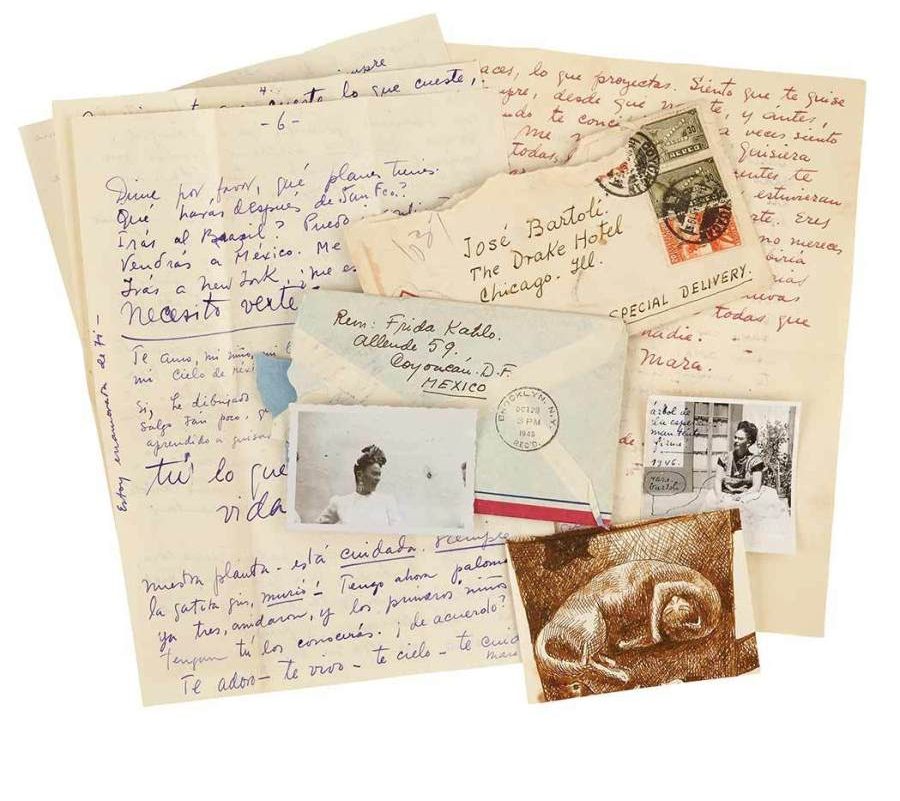 siempre
4.
cueste lo que cueste,
-6-
Dime por favor, qué planes tienes.
Qué harás después de San Fco.?
Irás al Brasil? Puedo
Vendrás a México. Me
Irás a New York, ¡me es
Necesito verte-
Te amo, mi niño, mi
mi cielo de
Si, he dibujado
Salgo tan poco, q
aprendido a guisar
tú lo que
vida
Estoy enamorada de ti-
nuestra planta - está cuidada. siempre
la gatita gris, murió! Tengo ahora paloma
ya tres, anidaron, y los primeros niños
tengan tú los conocerás. ¡de acuerdo?
Te adoro - te vivo - te cielo - te cuid
Mara
aces, lo que proyectas. Siento que te quise
pre, desde que te, y antes,
ndo te conci
me a veces siento
todas, quisiera
entes te
estuvieran
te. Eres
no mereces
todas que
nadie.
Mara.
de
AEREO
José Bartolí.
The Drake Hotel
Chicago. Ill.
SPECIAL DELIVERY.
Rem: Frida Kahlo.
Allende 59.
Coyoacán. D.F.
MEXICO
BROOKLYN, N.Y.
OCT 29
3 PM
1946
REC'D.
árbol de
la espera
mantente
firme
1946.
Mara
Bartolí